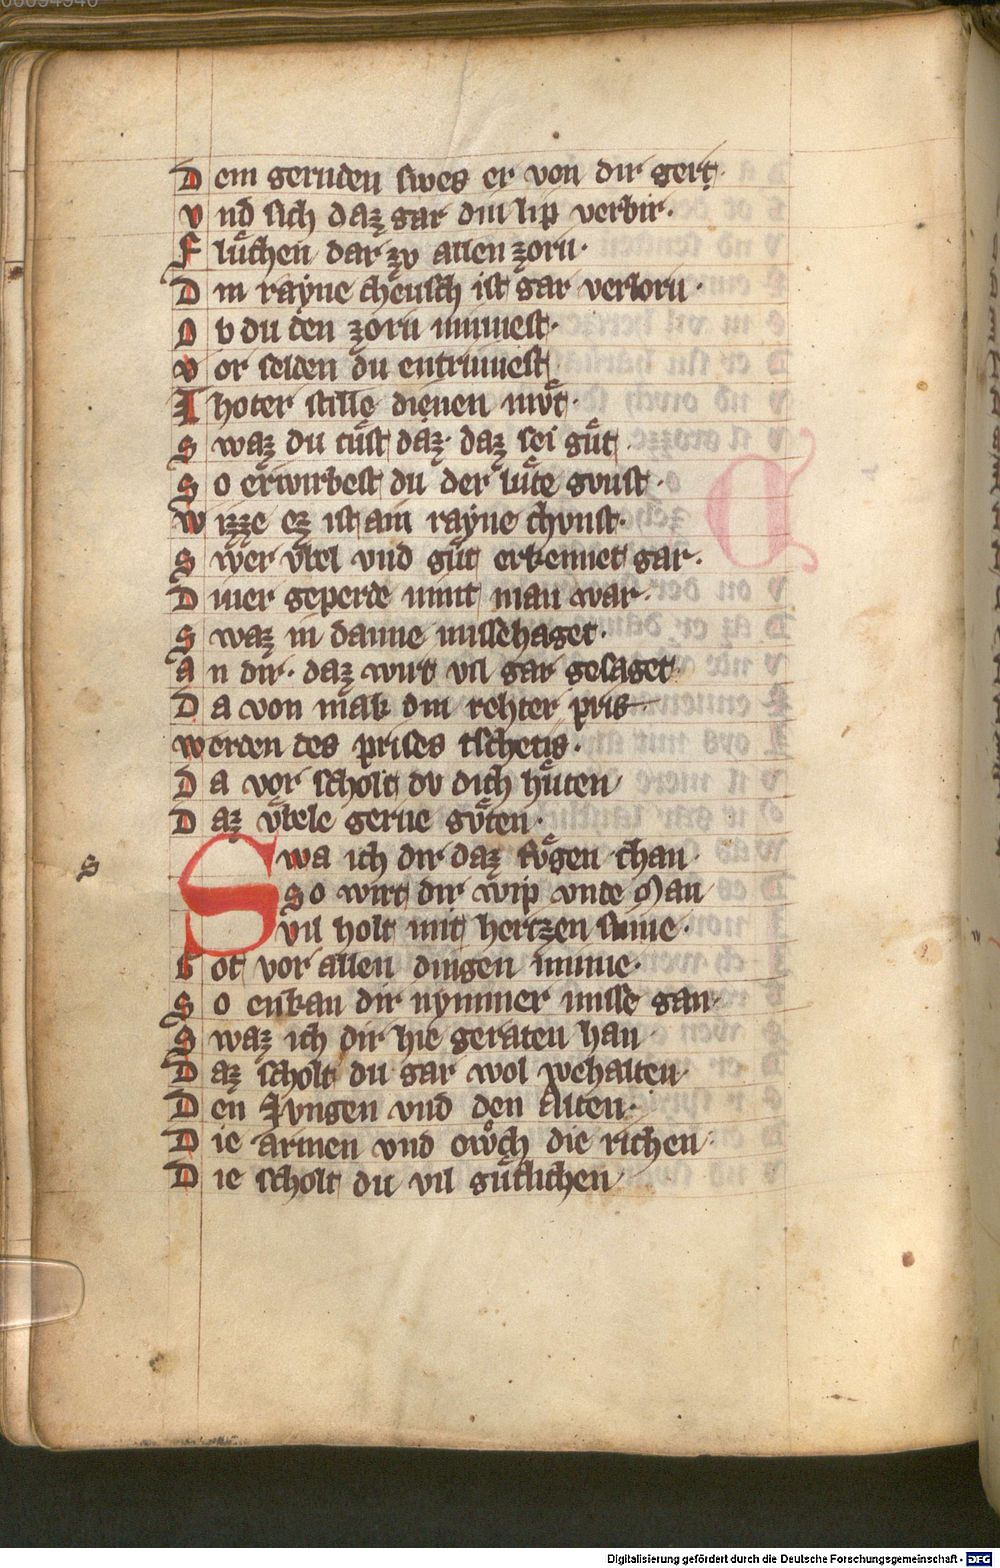 Dem gernden swes er von dir gert·
vnd sich daz gar din lip verbir·
Flůchen dar zv allen zorn·
Din rayne cheusch ist gar verlorn·
Ob du den zorn minnest·
vor selden du entrinnest
Ihoter stille dienen můt·
Swaz du tůst daz· daz sei gůt
So erwirbest du der lůte gvnst·
wizze ez ist ain rayne chvnst·
Swer vbel vnd gůt erkennet gar·
Diner geperde nimt man war·
Swaz in danne missehaget·
An dir· daz wirt vil gar gesaget·
Da von mak din rehter pris
werden des prises tschetis·
Da vor scholt dv dich hůten
Daz vbele gerne gůten·
Swa ich dir daz fůgen chan·
So wirt dir wip vnde Man
vil holt mit hertzen sinne·
Got vor allen dingen minne·
So enkan dir nymmer misse gan·
Swaz ich dir hie geraten han·
Daz scholt du gar wol wehalten·
Den Jvngen vnd den Alten·
Die armen vnd owch die richen·
Die scholt du vil gůtlichen
s
Digitalisierung gefördert durch die Deutsche Forschungsgemeinschaft - DFG